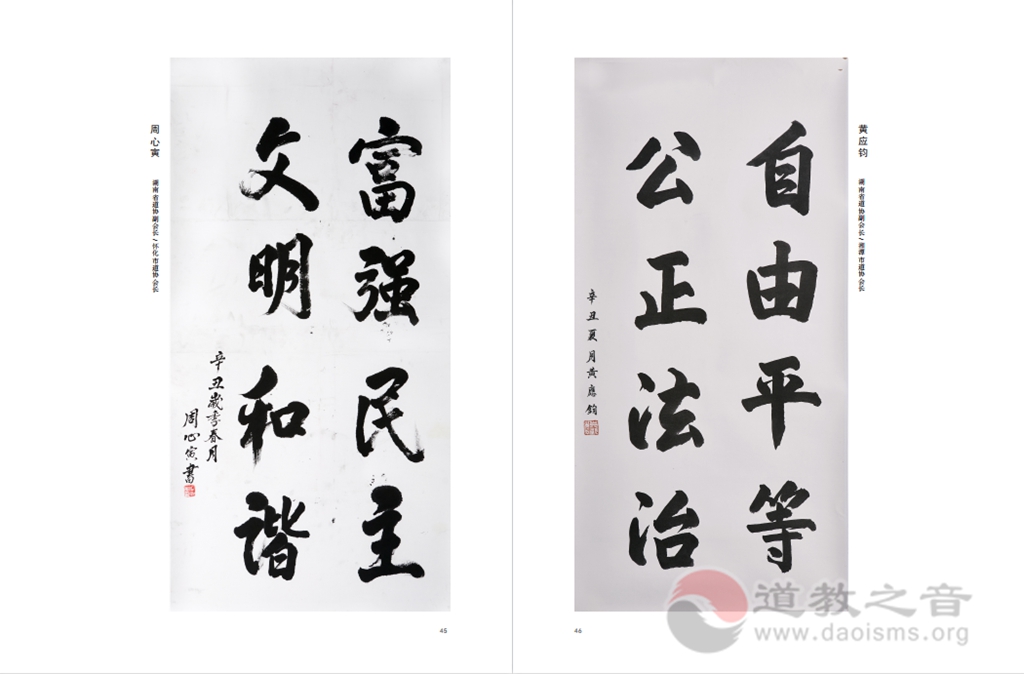 周心寅
湖南省道协副会长/怀化市道协会长
富强民主
文明和谐
辛丑歲季春月
周心寅書
45
黄应钧
湖南省道协副会长/湘潭市道协会长
自由平等
公正法治
辛丑夏月黄應鈞
46
道教之音
www.daoisms.org